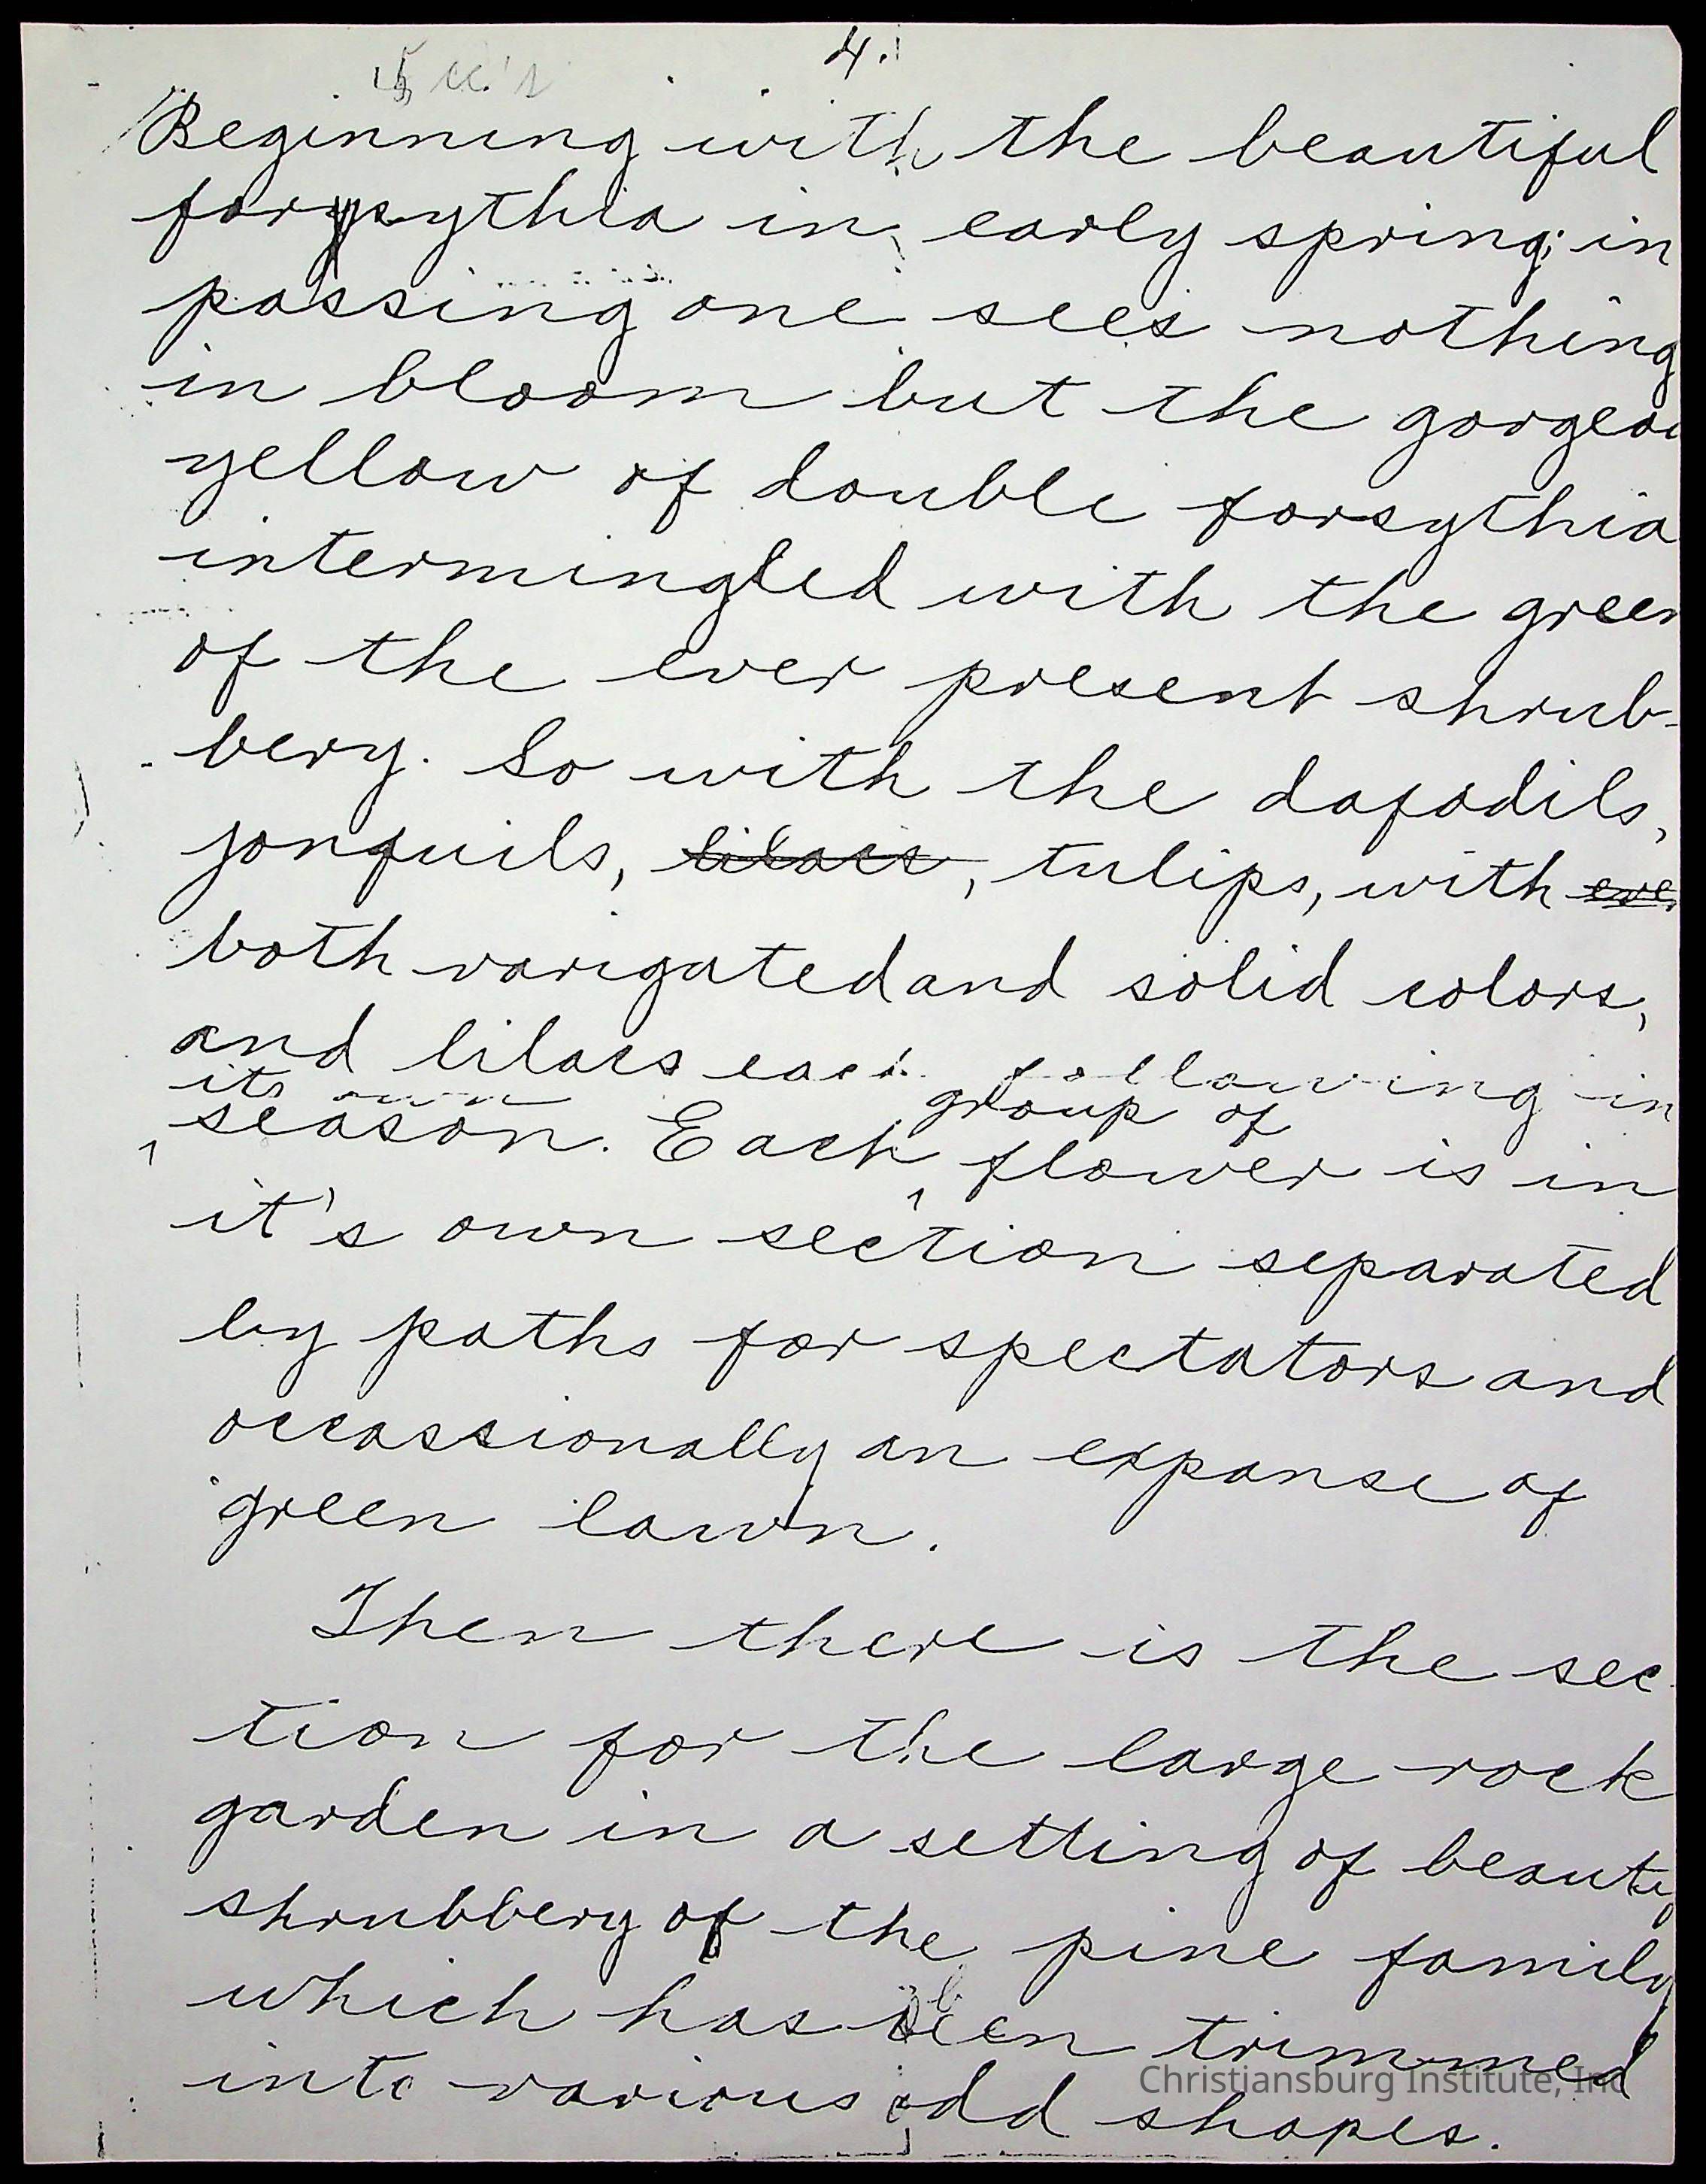 4.
Beginning with the beautiful
forysythia in early spring; in
passing one sees nothing
in bloom but the gorgeou
yellow of double forsythia
intermingled with the green
of the ever present shrub-
bery. So with the dafodils,
jonquils, lilacs, tulips, with eve
both varigated and solid colors,
and lilacs each following in
its own group of
season. Each flower is in
it's own section separated
by paths for spectators and
occassionally an expanse of
green lawn.
Then there is the sec
tion for the large rock
garden in a setting of beauty
shrubbery of the pine family
which has been trimmed
into various odd shapes.
Christiansburg Institute, Inc